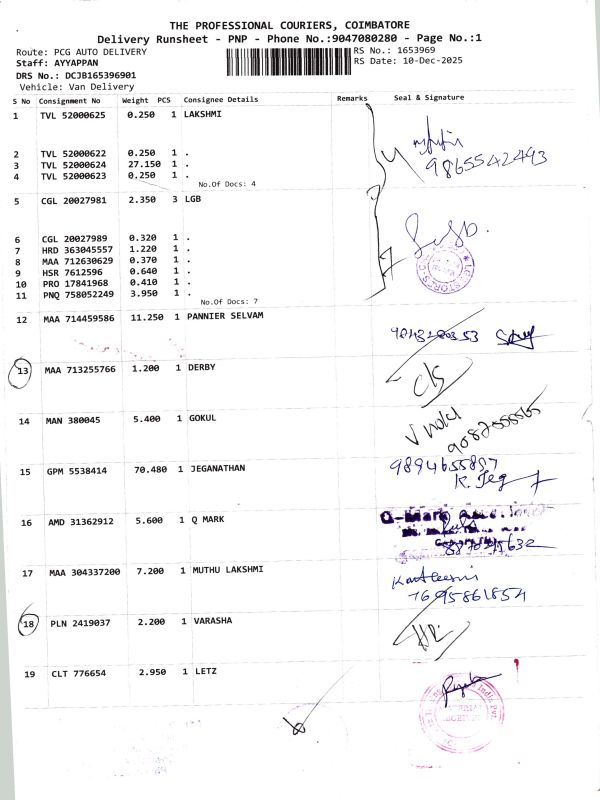 THE PROFESSIONAL COURIERS, COIMBATORE
Delivery Runsheet - PNP - Phone No.:9047080280 - Page No.:1
Route: PCG AUTO DELIVERY
RS No.: 1653969
Staff: AYYAPPAN
RS Date: 10-Dec-2025
DRS No.: DCJB165396901
Vehicle: Van Delivery
S No Consignment No Weight PCS Consignee Details Remarks Seal & Signature
1 TVL 52000625 0.250 1 LAKSHMI
9865542493
2 TVL 52000622 0.250 1 .
3 TVL 52000624 27.150 1 .
4 TVL 52000623 0.250 1 .
No.Of Docs: 4
5 CGL 20027981 2.350 3 LGB
6 CGL 20027989 0.320 1 .
7 HRD 363045557 1.220 1 .
8 MAA 712630629 0.370 1 .
9 HSR 7612596 0.640 1 .
10 PRO 17841968 0.410 1 .
11 PNQ 758052249 3.950 1 .
No.Of Docs: 7
12 MAA 714459586 11.250 1 PANNIER SELVAM
13 MAA 713255766 1.200 1 DERBY
14 MAN 380045 5.400 1 GOKUL
15 GPM 5538414 70.480 1 JEGANATHAN
9894655857
K. Jeg
16 AMD 31362912 5.600 1 Q MARK
Q-Mark
17 MAA 304337200 7.200 1 MUTHU LAKSHMI
18 PLN 2419037 2.200 1 VARASHA
19 CLT 776654 2.950 1 LETZ